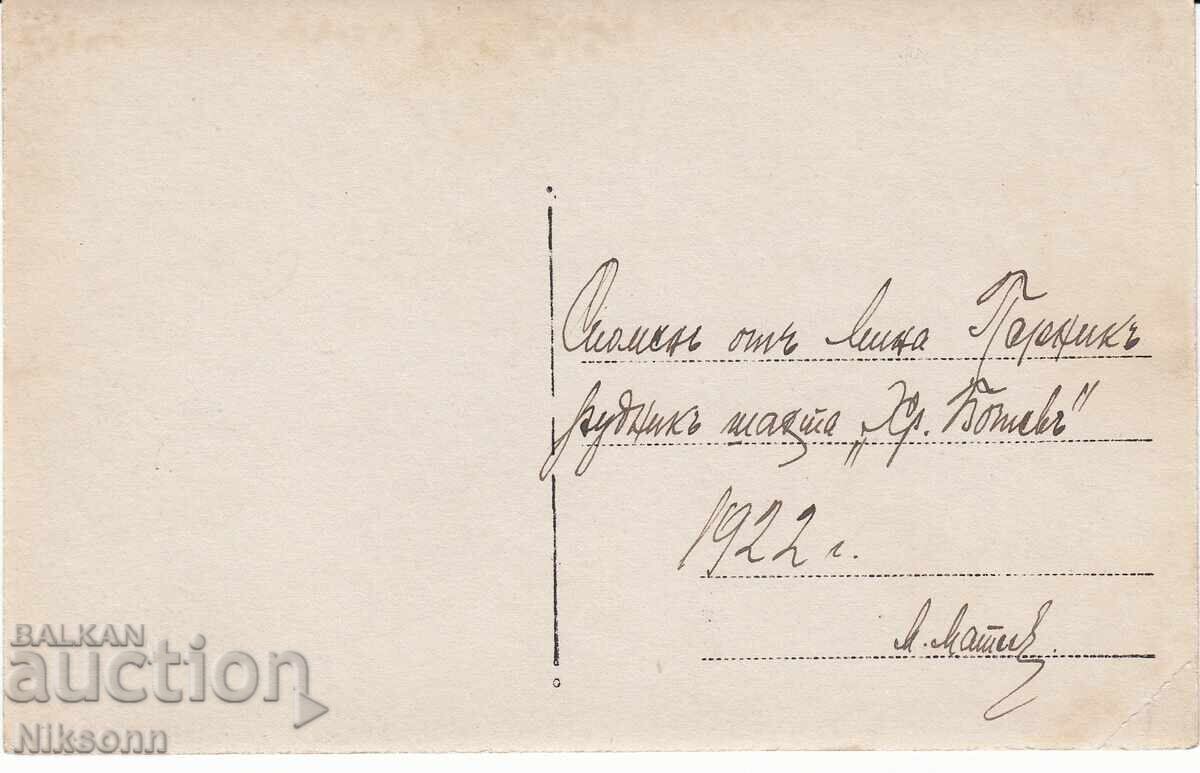 Споменъ отъ Мина Перникъ
рудникъ шахта „Хр. Ботевъ"
1922 г.
М. Матеев.
BALKAN
auction
Niksonn